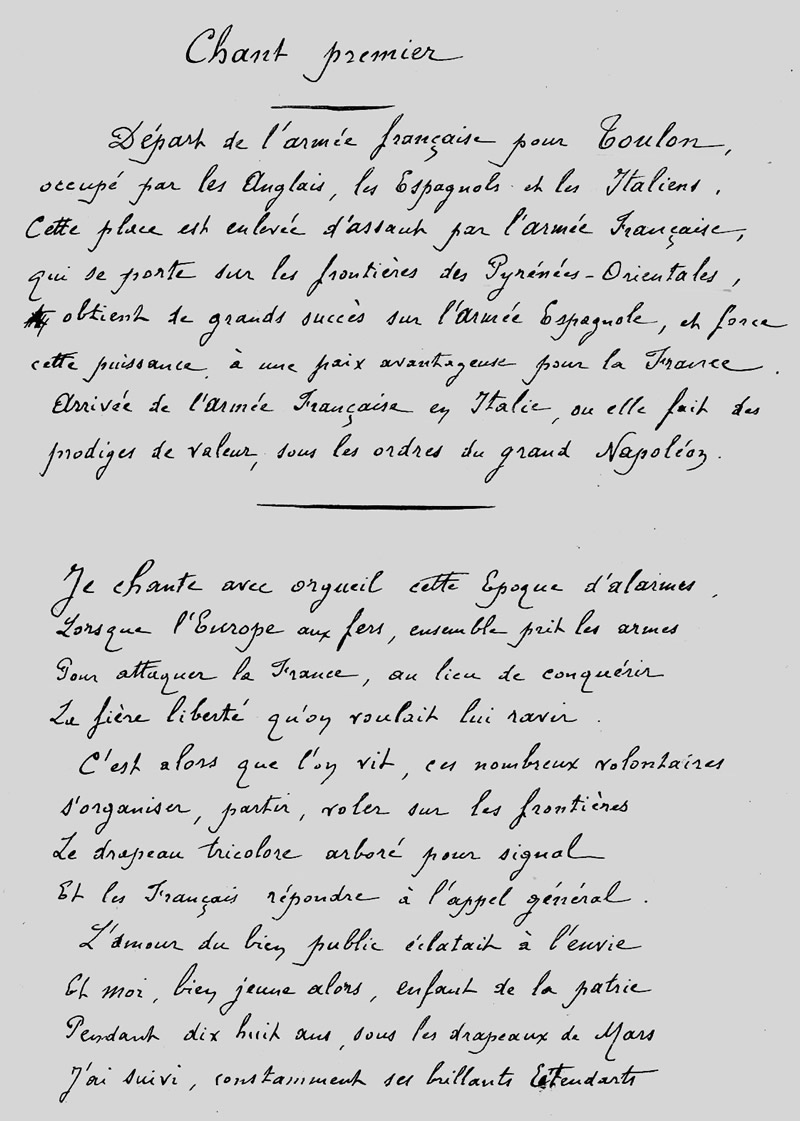 Chant premier
Départ de l'armée française pour Toulon,
occupé par les Anglais, les Espagnols et les Italiens.
Cette place est enlevée d'assaut par l'armée Française,
qui se porte sur les frontières des Pyrénées-Orientales,
obtient de grands succès sur l'armée Espagnole, et force
cette puissance à une paix avantageuse pour la France.
Arrivée de l'armée Française en Italie, ou elle fait des
prodiges de valeur, sous les ordres du grand Napoléon.
Je chante avec orgueil cette Epoque d'alarmes,
Lorsque l'Europe aux fers, ensemble prit les armes
Pour attaquer la France, au lieu de conquérir
La fière liberté qu'on voulait lui ravir.
C'est alors que l'on vit, ces nombreux volontaires
s'organiser, partir, voler sur les frontières
Le drapeau tricolore arboré pour signal
Et les Français répondre à l'appel général.
L'amour du bien public éclatait à l'envie
Et moi, bien jeune alors, enfant de la patrie
Pendant dix huit ans, sous les drapeaux de Mars
J'ai suivi, constamment ses brillants Etendarts